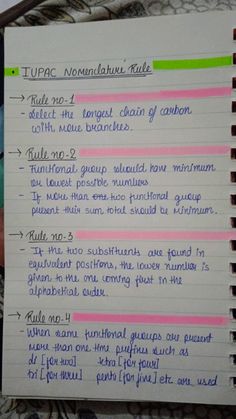 IUPAC Nomenclature Rule
→ Rule no-1
- Select the longest chain of carbon
with more branches.
→ Rule no-2
- Functional group should have minimum
or lowest possible numbers
- If more than one two functional group
present their sum total should be minimum.
→ Rule no-3
- If the two substituents are found in
equivalent positions, the lower number is
given to the one coming first in the
alphabetical order.
→ Rule no-4
- When same functional groups are present
more than one time prefixes such as
di [for two] tetra [for four]
tri [for three] penta [for five] etc are used